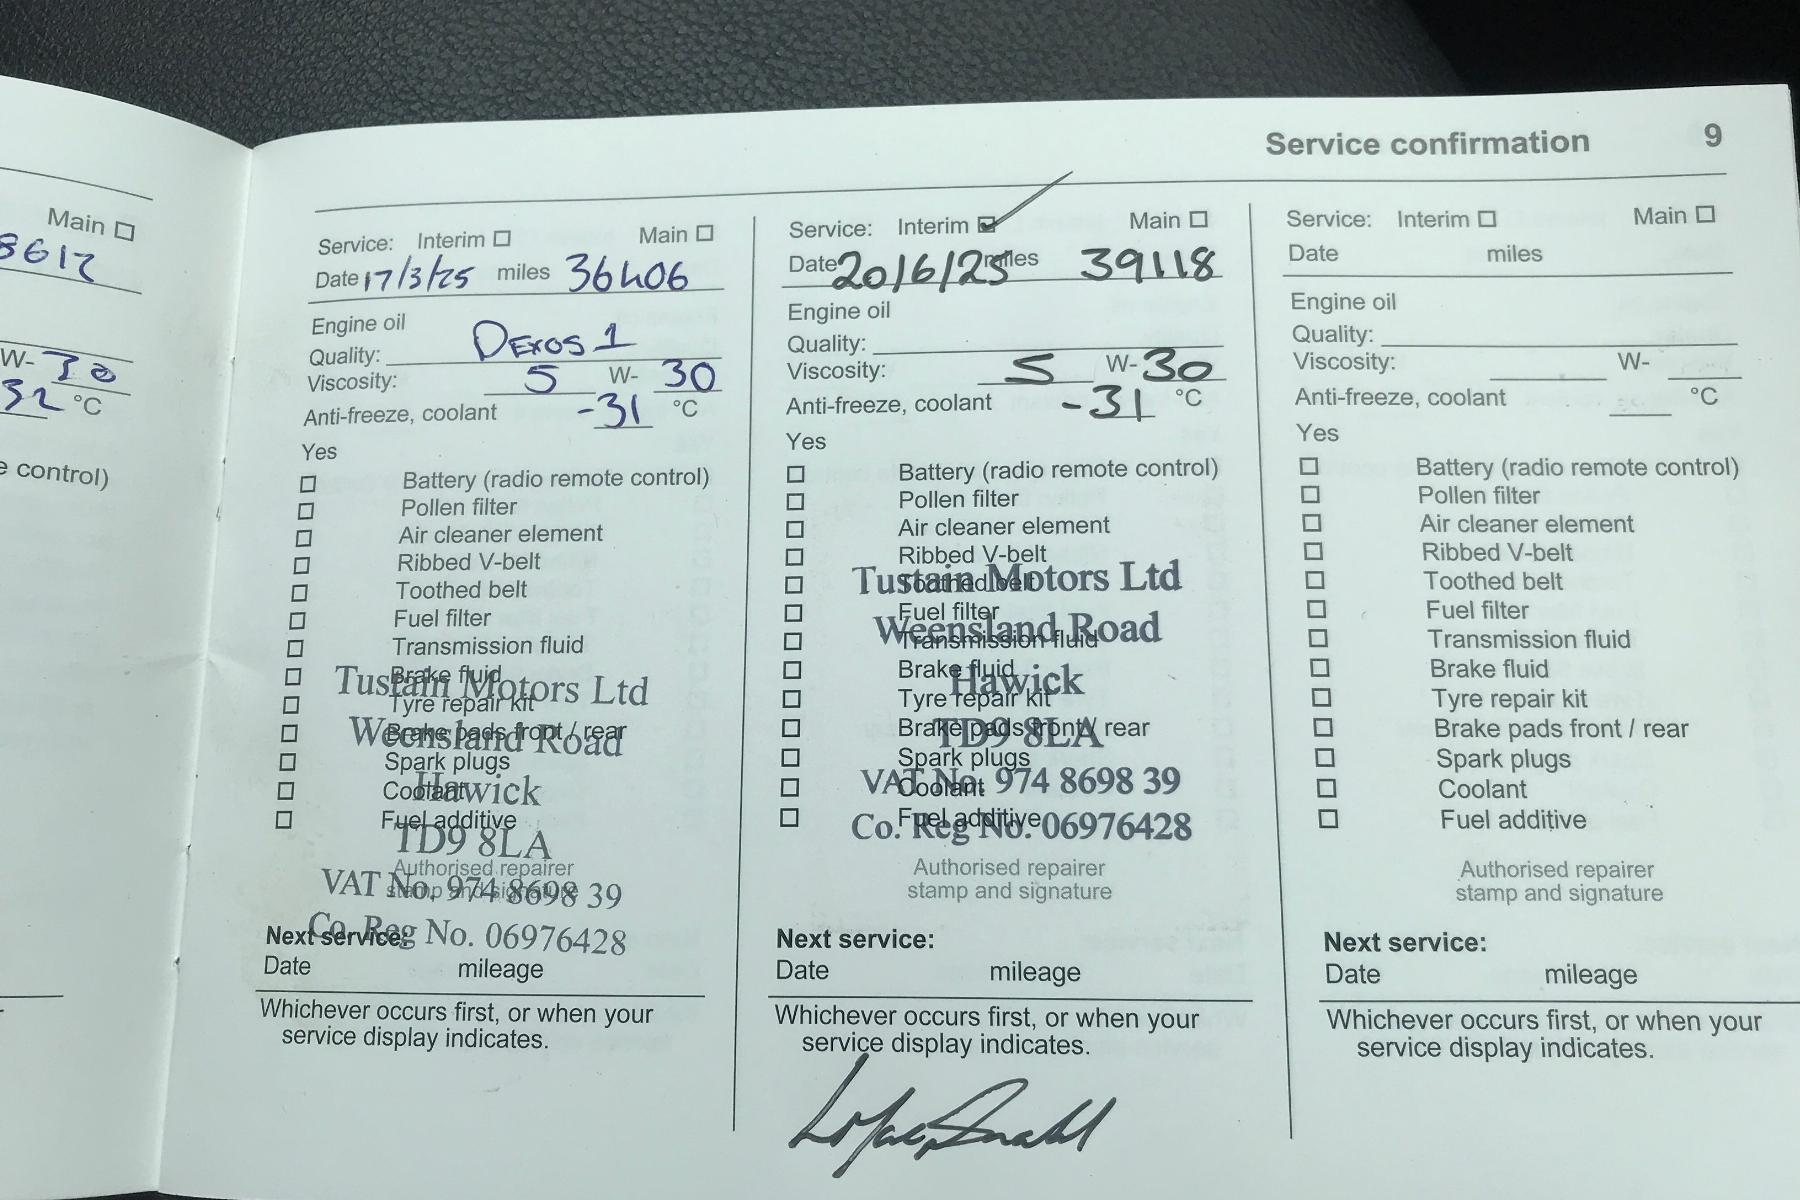 Service confirmation 9
Main ☐
8612
W- 30
32 °C
e control)
Service: Interim ☐ Main ☐
Date 17/3/25 miles 36406
Engine oil
Quality: Dexos 1
Viscosity: 5 W- 30
Anti-freeze, coolant -31 °C
Yes
☐ Battery (radio remote control)
☐ Pollen filter
☐ Air cleaner element
☐ Ribbed V-belt
☐ Toothed belt
☐ Fuel filter
☐ Transmission fluid
☐ Brake fluid
☐ Tyre repair kit
☐ Brake pads front / rear
☐ Spark plugs
☐ Coolant
☐ Fuel additive
Tustain Motors Ltd
Weensland Road
Hawick
TD9 8LA
VAT No. 974 8698 39
Co. Reg No. 06976428
Authorised repairer
stamp and signature
Next service:
Date mileage
Whichever occurs first, or when your
service display indicates.
Service: Interim ☑ Main ☐
Date 20/6/25 miles 39118
Engine oil
Quality:
Viscosity: 5 W- 30
Anti-freeze, coolant -31 °C
Yes
☐ Battery (radio remote control)
☐ Pollen filter
☐ Air cleaner element
☐ Ribbed V-belt
☐ Toothed belt
☐ Fuel filter
☐ Transmission fluid
☐ Brake fluid
☐ Tyre repair kit
☐ Brake pads front / rear
☐ Spark plugs
☐ Coolant
☐ Fuel additive
Tustain Motors Ltd
Weensland Road
Hawick
TD9 8LA
VAT No. 974 8698 39
Co. Reg No. 06976428
Authorised repairer
stamp and signature
Next service:
Date mileage
Whichever occurs first, or when your
service display indicates.
Service: Interim ☐ Main ☐
Date miles
Engine oil
Quality:
Viscosity: W-
Anti-freeze, coolant °C
Yes
☐ Battery (radio remote control)
☐ Pollen filter
☐ Air cleaner element
☐ Ribbed V-belt
☐ Toothed belt
☐ Fuel filter
☐ Transmission fluid
☐ Brake fluid
☐ Tyre repair kit
☐ Brake pads front / rear
☐ Spark plugs
☐ Coolant
☐ Fuel additive
Authorised repairer
stamp and signature
Next service:
Date mileage
Whichever occurs first, or when your
service display indicates.